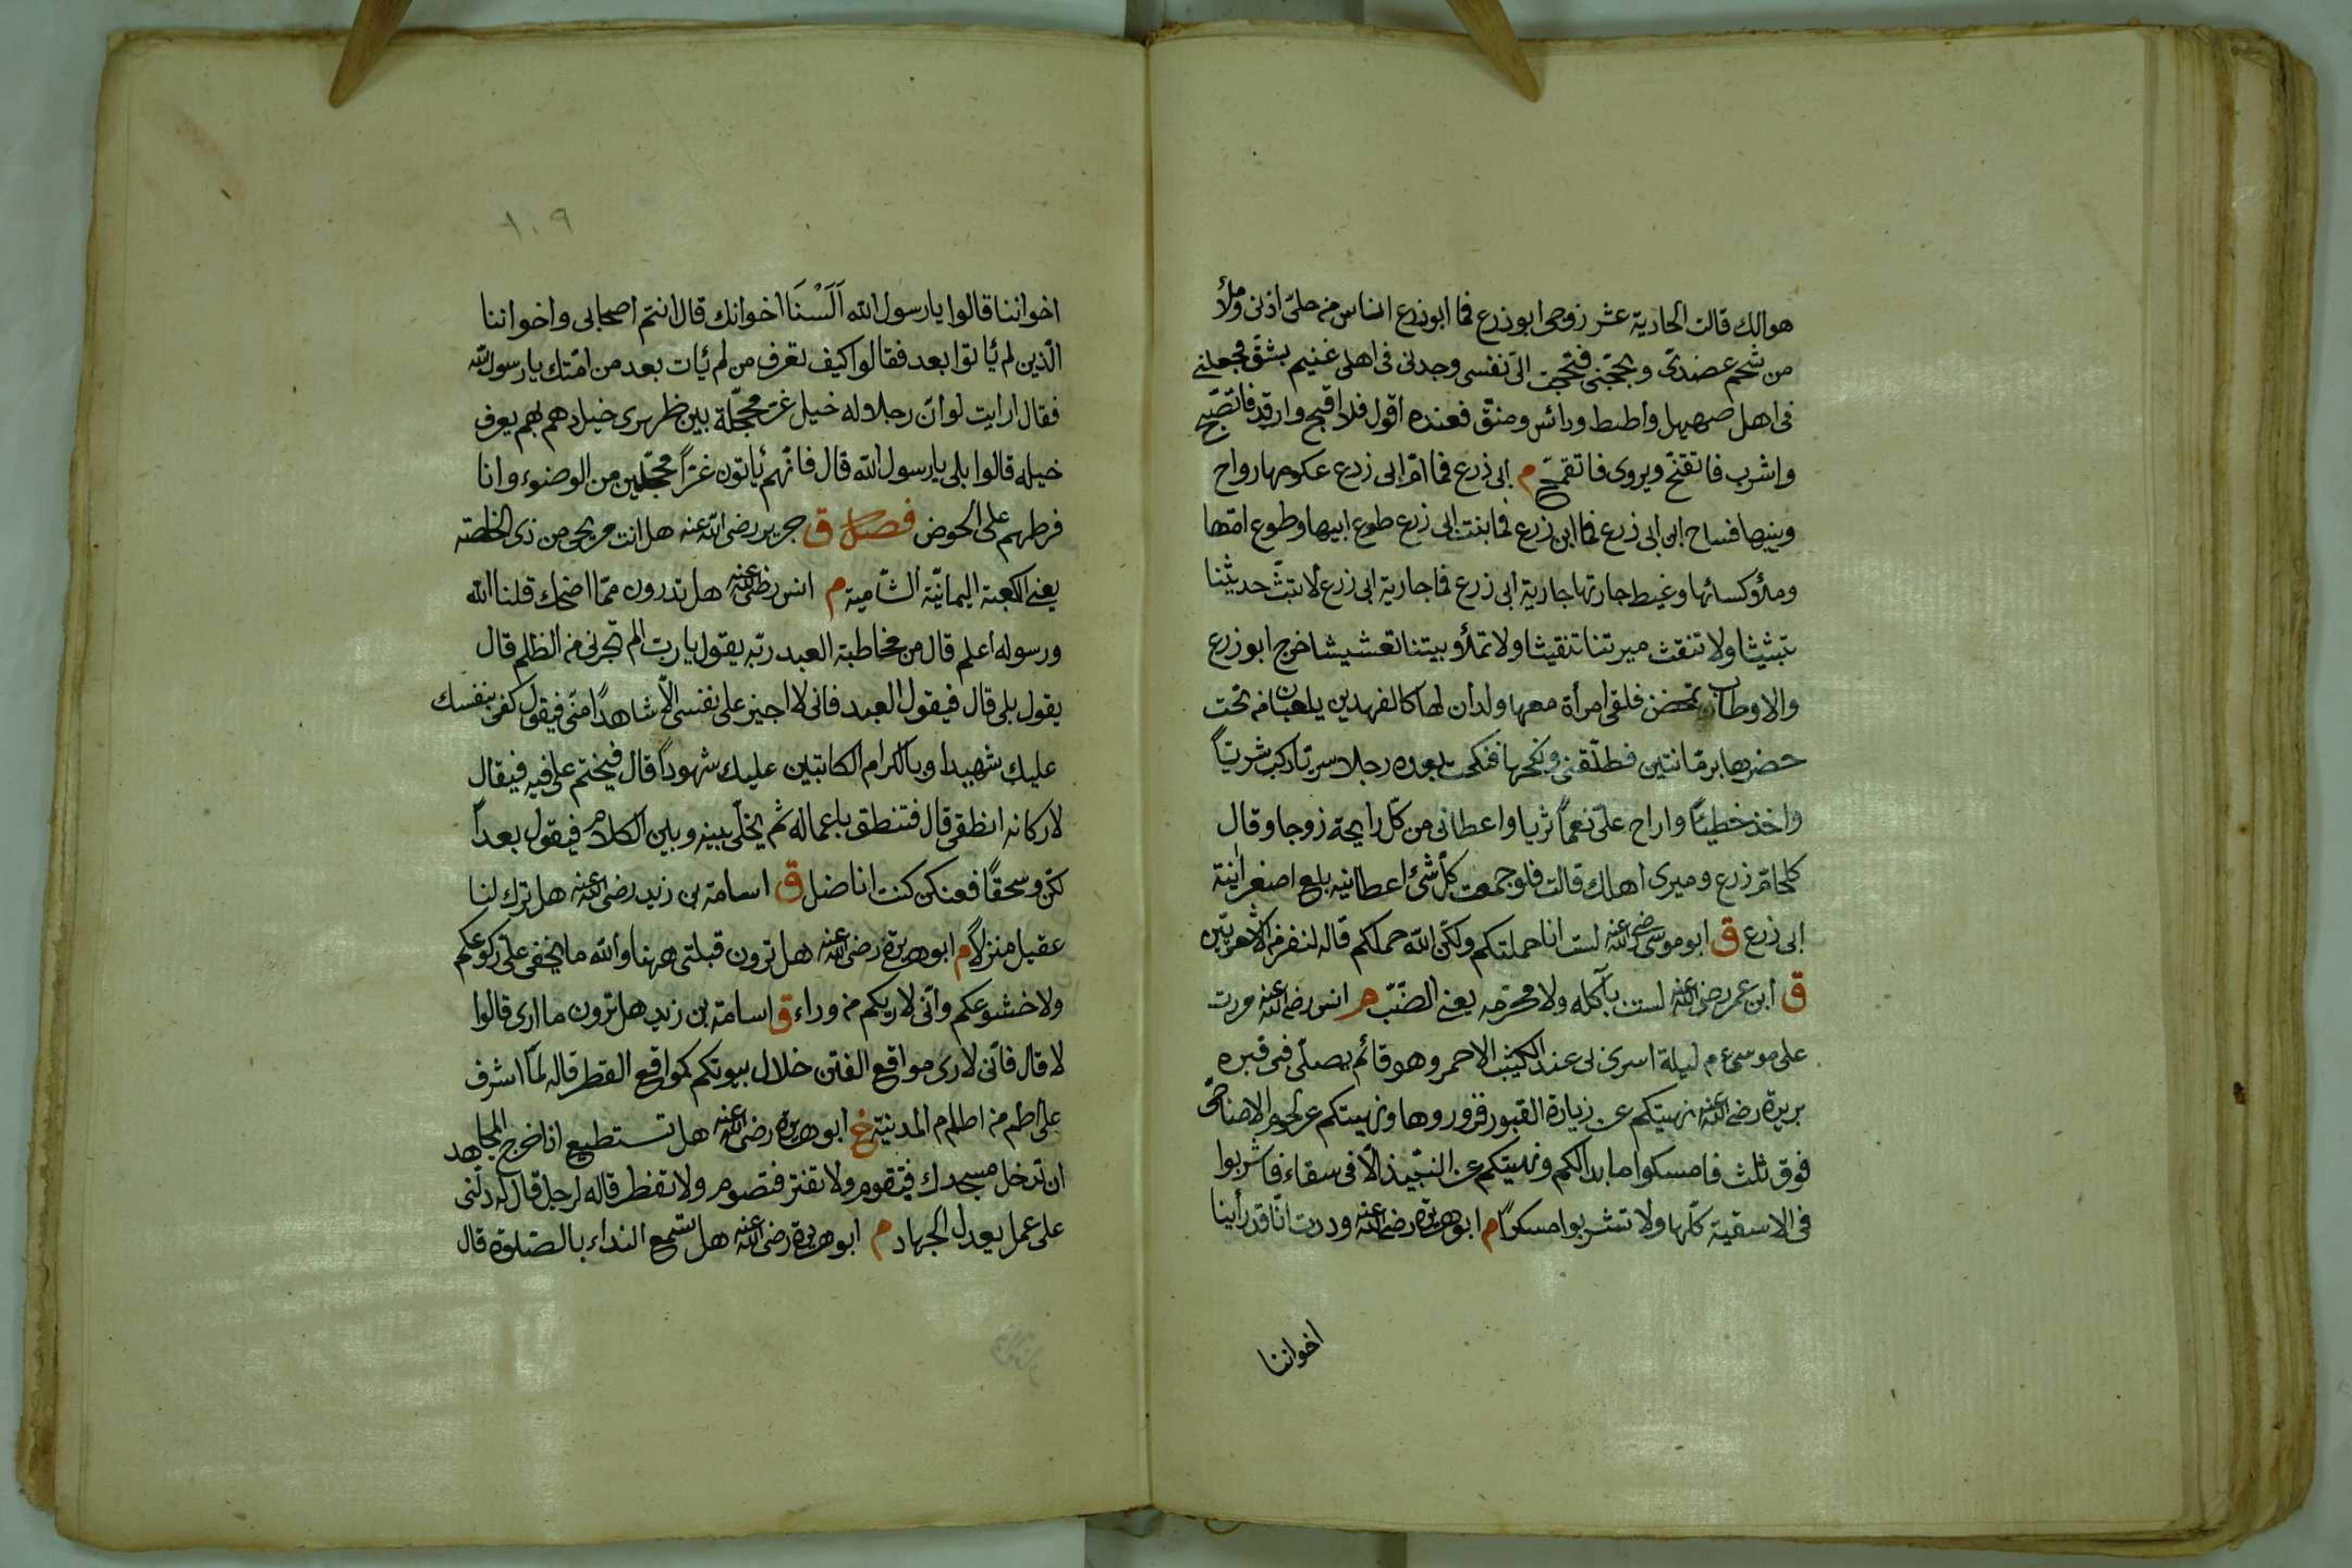 هوالك قالت الحادية عشر زوجى ابوزرع فما ابوزرع اناس من حلىّ اذنى وملأ
من شحم عضدىّ وبجّحنى فبجحت الىّ نفسى وجدنى فى اهلى غنيم بشقّ فجعلنى
فى اهل صهيل واطيط ودائس ومنقّ فعنده اقول فلا اقبح وارقد فاتصبّح
واشرب فاتقنح ويروى فاتقمّح م ابى زرع فما امّ ابى زرع عكومها رواح
وبيتها فساح ابن ابى زرع فما ابن زرع فما بنت ابى زرع طوع ابيها وطوع امّها
وملؤ كسائها وغيط جارتها جارية ابى زرع فما جارية ابى زرع لا تبثّ حديثنا
تبثيثا ولا تنقث ميرتنا تنقيثا ولا تملأو بيتنا تعشيشا خرج ابوزرع
والاوطاب تمخض فلقى امرأة معها ولدان لها كالفهدين يلعبان من تحت
حضرها برمّانتين فطلّقنى ونكحها فنكحت بعده رجلا سريّا ركب شريّاً
واخذ خطيّاً واراح علىّ نعماً ثريا واعطانى من كلّ رايحة زوجا وقال
كلى امّ زرع وميرى اهلك قالت فلو جمعت كلّ شئ اعطانيه بلع اصغر اٰنية
ابى زرع ق ابو موسى رضى الله عنه لست انا حملتكم ولكن الله حملكم قاله لنفر من الاشعريّين
ق ابن عمر رضى الله عنه لست بآكله ولا محرّمه يعنى الضّبّ م انس رضى الله عنه مررت
على موسى ع م ليلة اسرى بى عند الكثيب الاحمر وهو قائم يصلّى فى قبره
بريدة رضى الله عنه نهيتكم عن زيارة القبور فزوروها ونهيتكم عن لحوم الاضاحى
فوق ثلث فامسكوا ما بدا لكم ونهيتكم عن النبيذ الّا فى سقاء فاشربوا
فى الاسقية كلّها ولا تشربوا مسكراً م ابو هريرة رضى الله عنه وددت انّا قد رأينا
اخواننا
١٠٩
اخواننا قالوا يا رسول الله اَلَسْنَا اخوانك قال انتم اصحابى واخواننا
الّذين لم يأتوا بعد فقالوا كيف تعرف من لم يأت بعد من امّتك يا رسول الله
فقال ارايت لو انّ رجلا وله خيل غرّ محجّلة بين ظهرى خيل دهم بهم يعرف
خيله قالوا بلى يا رسول الله قال فانّهم يأتون غرّاً محجّلين من الوضوء وانا
فرطهم على الحوض فصل ق جرير رضى الله عنه هل انت مريحى من ذى الخلصة
يعنى الكعبة اليمانيّة الشّامية م انس رضى الله عنه هل تدرون ممّا اضحك قلنا الله
ورسوله اعلم قال من مخاطبة العبد ربّه يقول يا ربّ الم تجرنى من الظلم قال
يقول بلى قال فيقول العبد فانى لا اجيز على نفسى الّا شاهداً منّى فيقول كفى بنفسك
عليك شهيدا وبالكرام الكاتبين عليك شهوداً قال فيختم على فيه فيقال
لاركانه انطقى قال فتنطق باعماله ثم يخلّى بينه وبين الكلام فيقول بعداً
لكنّ وسحقاً فعنكن كنت اناضل ق اسامة بن زيد رضى الله عنه هل ترك لنا
عقيل منزلاً م ابو هريرة رضى الله عنه هل ترون قبلتى ههنا والله ما يخفى علىّ ركوعكم
ولا خشوعكم وانّى لاريكم من وراء ق اسامة بن زيد هل ترون ما ارى قالوا
لا قال فانّى لارى مواقع الفتن خلال بيوتكم كمواقع القطر قاله لمّا اشرف
على اطم من اطام المدنية خ ابو هريرة رضى الله عنه هل تستطيع اذا خرج المجاهد
ان تدخل مسجدك فتقوم ولا تفتر فتصوم ولا تفطر قاله لرجل قال له دلّنى
على عمل يعدل الجهاد م ابو هريرة رضى الله عنه هل تسمع النداء بالصّلوة قال